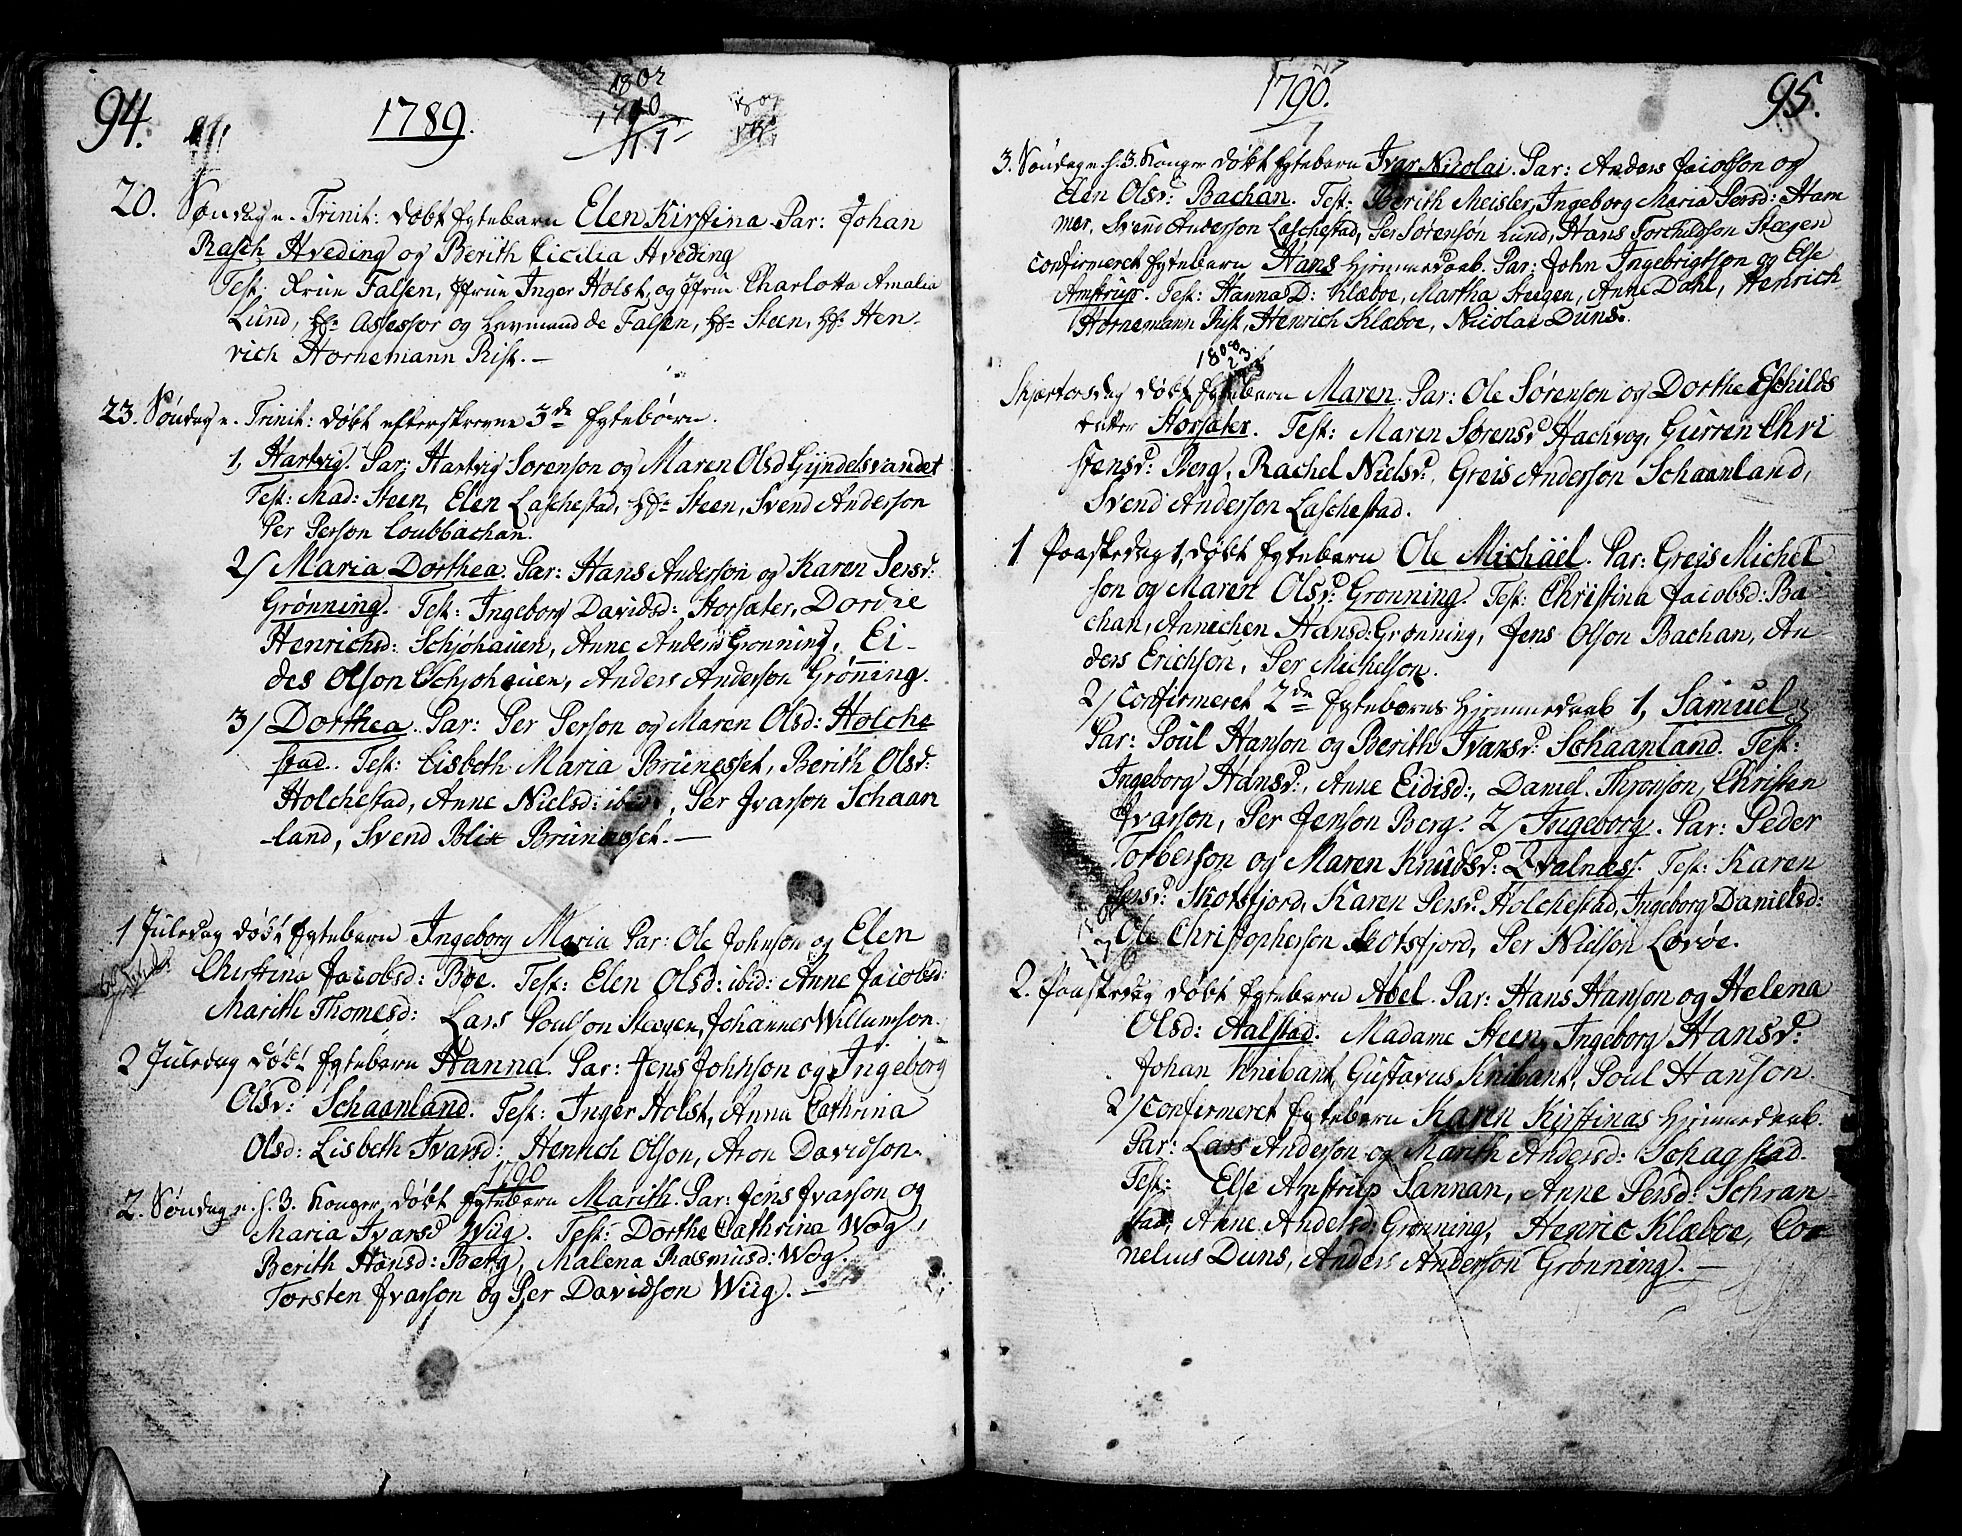 94.
1789.
1802
1790
20. Søndag e. Trinit: døbt Egtebarn Elen Kirstina. Par: Johan
Rasch Hveding og Berith Cicilia Hveding
Test: Frue Falsen, Jfrue Inger Holst, og Jfrue Charlotta Amalia
Lund, Hr. Assessor og Laymand de Falsen, Hr. Steen, Hr. Hen-
rich Hornemann Rist. —
23. Søndag e. Trinit: døbt efterskrevne 3de Egtebørn.
1, Hartvig. Par: Hartvig Sørenson og Maren Olsd Gyndelsvandet
Test: Mad: Steen, Elen Laschestad, Hr. Steen, Svend Anderson
Per Person Coubbachan.
2/ Maria Dorthea. Par: Hans Anderson og Karen Persd:
Grønning. Test: Ingeborg Davidsd: Storsater, Dordie
Henrichsd: Schjøhauen, Anne Andersd Grønning, Ei-
des Olson Schjøhauen, Anders Anderson Grønning.
3/ Dorthea. Par: Per Person og Maren Olsd: Holche
stad. Test: Lisbeth Maria Brunesset, Berith Olsd:
Holchestad, Anne Nielsd: ibid:, Per Ivarson Schaan
land, Svend Blix Brunesset. —
1 Juledag døbt Egtebarn Ingeborg Maria Par: Ole Johnson og Elen
Christina Jacobsd: Bøe. Test: Elen Olsd: ibid: Anne Jacobsd:
Marith Thomesd: Lars Poulson Steegen, Johannes Willumson.
2 Juledag døbt Egtebarn Hanna. Par: Jens Johnson og Ingeborg
Olsd: Schaanland. Test: Inger Holst, Anna Cathrina
Olsd: Lisbeth Ivarsd: Henrich Olson, Aron Davidson.
1790
2. Søndag e. h. 3. Konger døbt Egtebarn Marith. Par: Jens Ivarson og
Maria Ivarsd Wiig. Test: Dorthe Cathrina Wog,
Berith Hansd: Berg, Malena Rasmusd: Wog.
Torsten Ivarson og Per Davidson Wiig. —
1790.
95.
3. Søndag e. h. 3 Konger døbt Egtebarn Ivar Nicolai. Par: Anders Jacobson og
Elen Olsd: Bachan. Test: Berith Meisler, Ingeborg Maria Persd: Ham
mer, Svend Anderson Laschestad, Per Sørenson Lund, Hans Torchildson Stægen
Confirmeret Egtebarn Hans Hjemmedaab. Par: John Ingebrigtson og Else
Amstrup. Test: Hanna D: Klæboe, Martha Steegen, Anne Dahl, Henrich
Hornemann Rist, Henrich Klæboe, Nicolai Duns.
1808
23
Skjærtorsdag døbt Egtebarn Maren. Par: Ole Sørenson og Dorthe Eschilds
datter Horsater. Test: Maren Sørensd Hachvog, Gurren Chri
stensd: Berg, Rachel Nielsd:, Greis Anderson Schaanland,
Svend Anderson Laschestad.
1 Paaskedag 1, døbt Egtebarn Ole Michael. Par: Greis Michel
son og Maren Olsd: Grønning. Test: Christina Jacobsd: Ba-
chan, Annichen Hansd: Grønning, Jens Olson Bachan, An-
ders Erichson, Per Michelson.
2/ Confirmeret 2de Egtebørns Hjemmedaab 1, Samuel
Par: Poul Hanson og Berith Ivarsd: Schaanland. Test:
Ingeborg Hansd:, Anne Eidisd:, Daniel Thronson, Christen
Ivarson, Per Jenson Berg. 2/ Ingeborg. Par: Peder
Torberson og Maren Knudsd: Qvalnæs. Test: Karen
Persd: Skotsfjord, Karen Persd: Holchestad, Ingeborg Danielsd:
Ole Christopherson Skotsfjord, Per Nielson Lovøe.
2. Paaskedag døbt Egtebarn Abel. Par: Hans Hanson og Helena
Olsd: Aalstad. Madame Steen, Ingeborg Hansd:
Johan Knibant, Gustavus Knibant, Poul Hanson.
2/ Confirmeret Egtebarn Karen Kirstinas Hjemmedaab.
Par: Lars Anderson og Marith Andersd: Schagstad.
Test: Else Amstrup Sannan, Anne Persd: Schran-
stad, Anne Andersd: Grønning, Henric Klæboe, Cor
nelius Duns, Anders Anderson Grønning. —